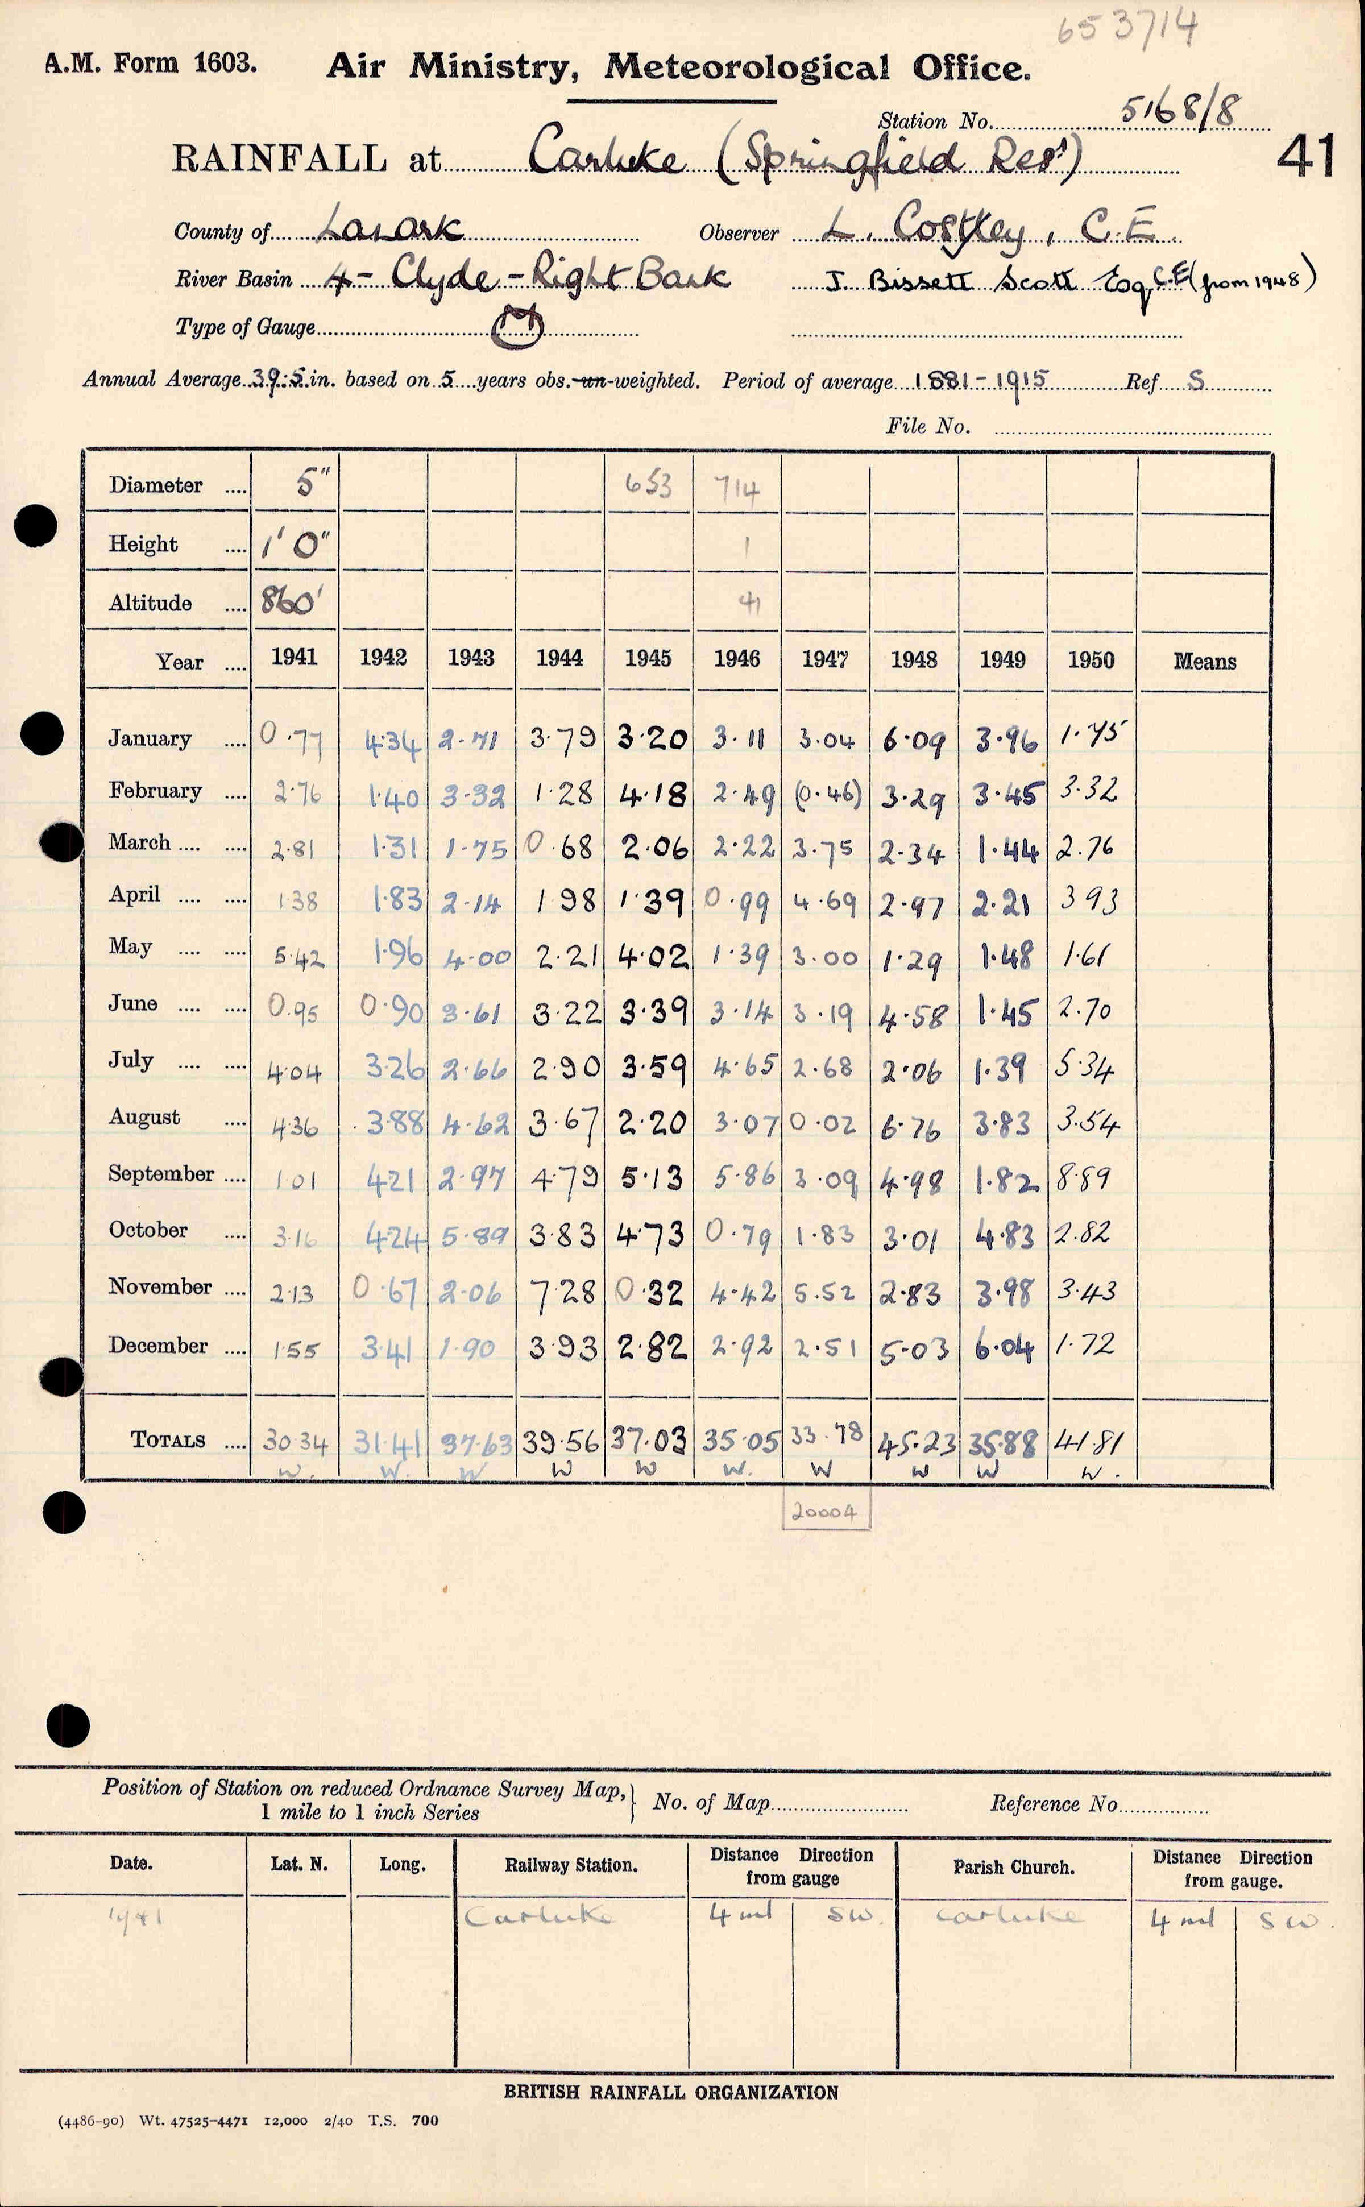 653714
A.M. Form 1603. Air Ministry, Meteorological Office.
Station No. 5168/8
RAINFALL at Carluke (Springfield Resr) 41
County of Lanark Observer L. Costley, C.E.
River Basin 4 - Clyde - Right Bank J. Bissett Scott Esq C.E (from 1948)
Type of Gauge M
Annual Average 39.5 in. based on 5 years obs. un-weighted. Period of average 1881-1915 Ref S
File No.
Diameter .... 5" 653 714
Height .... 1' 0" 1
Altitude .... 860' 41
Year .... 1941 1942 1943 1944 1945 1946 1947 1948 1949 1950 Means
January .... 0.77 4.34 2.71 3.79 3.20 3.11 3.04 6.09 3.96 1.75
February .... 2.76 1.40 3.32 1.28 4.18 2.49 (0.46) 3.29 3.45 3.32
March .... .... 2.81 1.31 1.75 0.68 2.06 2.22 3.75 2.34 1.44 2.76
April .... .... 1.38 1.83 2.14 1.98 1.39 0.99 4.69 2.97 2.21 3.93
May .... .... 5.42 1.96 4.00 2.21 4.02 1.39 3.00 1.29 1.48 1.61
June .... .... 0.95 0.90 3.61 3.22 3.39 3.14 3.19 4.58 1.45 2.70
July .... .... 4.04 3.26 2.66 2.90 3.59 4.65 2.68 2.06 1.39 5.34
August .... 4.36 3.88 4.62 3.67 2.20 3.07 0.02 6.76 3.83 3.54
September .... 1.01 4.21 2.97 4.79 5.13 5.86 3.09 4.98 1.82 8.89
October .... 3.16 4.24 5.89 3.83 4.73 0.79 1.83 3.01 4.83 2.82
November .... 2.13 0.67 2.06 7.28 0.32 4.42 5.52 2.83 3.98 3.43
December .... 1.55 3.41 1.90 3.93 2.82 2.92 2.51 5.03 6.04 1.72
TOTALS .... 30.34 31.41 37.63 39.56 37.03 35.05 33.78 45.23 35.88 41.81
W. W. W W W W. W W W W.
20004
Position of Station on reduced Ordnance Survey Map, } No. of Map Reference No
1 mile to 1 inch Series
Date. Lat. N. Long. Railway Station. Distance Direction from gauge Parish Church. Distance Direction from gauge.
1941 Carluke 4 ml SW. Carluke 4 ml SW.
BRITISH RAINFALL ORGANIZATION
(4486-90) Wt. 47525-4471 12,000 2/40 T.S. 700